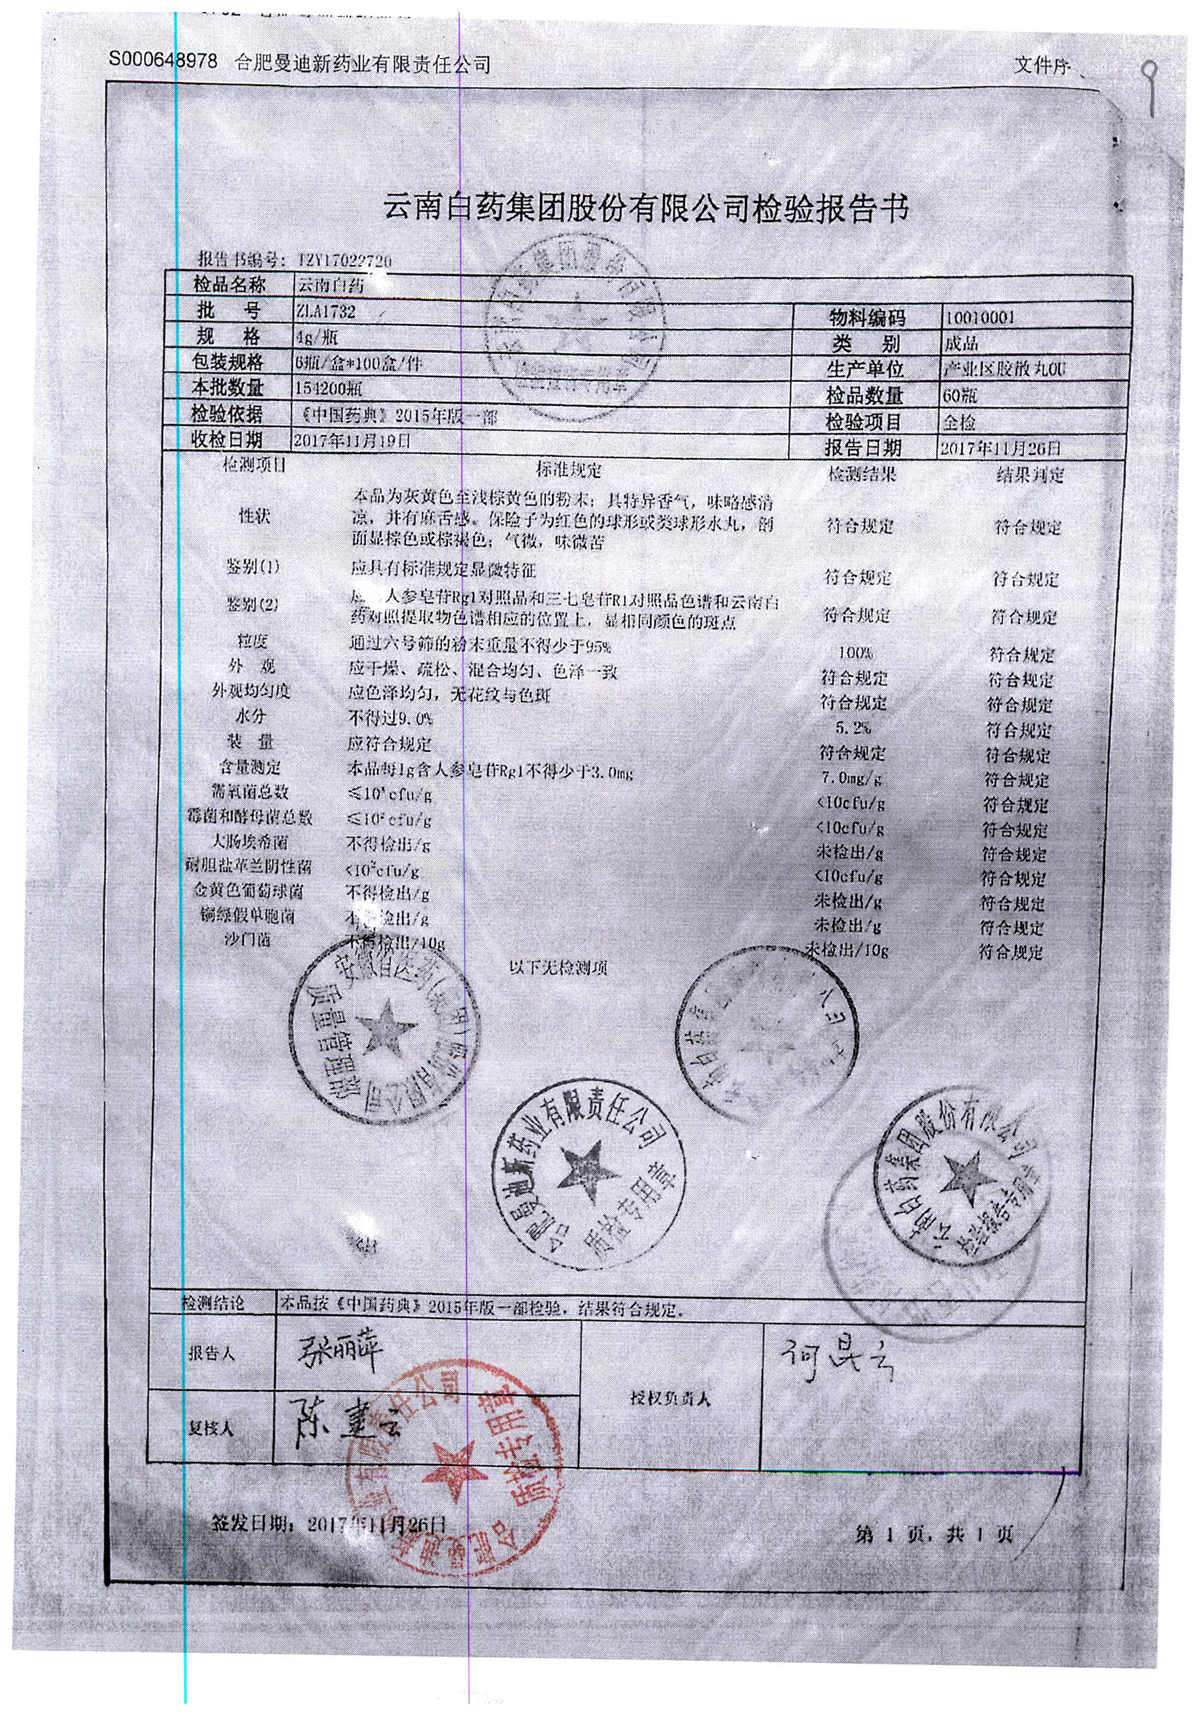 S000648978 合肥曼迪新药业有限责任公司 文件序
9
云南白药集团股份有限公司检验报告书
报告书编号: TZY17022720
检品名称 云南白药
批 号 ZLA1732 物料编码 10010001
规 格 4g/瓶 类 别 成品
包装规格 6瓶/盒*100盒/件 生产单位 产业区胶散丸OU
本批数量 154200瓶 检品数量 60瓶
检验依据 《中国药典》2015年版一部 检验项目 全检
收检日期 2017年11月19日 报告日期 2017年11月26日
检测项目 标准规定 检测结果 结果判定
本品为灰黄色至浅棕黄色的粉末；具特异香气，味略感清
性状 凉，并有麻舌感。保险子为红色的球形或类球形水丸，剖 符合规定 符合规定
面显棕色或棕褐色；气微，味微苦
鉴别(1) 应具有标准规定显微特征 符合规定 符合规定
鉴别(2) 人参皂苷Rg1对照品和三七皂苷R1对照品色谱和云南白 符合规定 符合规定
药对照提取物色谱相应的位置上，显相同颜色的斑点
粒度 通过六号筛的粉末重量不得少于95% 100% 符合规定
外 观 应干燥、疏松、混合均匀、色泽一致 符合规定 符合规定
外观均匀度 应色泽均匀，无花纹与色斑 符合规定 符合规定
水分 不得过9.0% 5.2% 符合规定
装 量 应符合规定 符合规定 符合规定
含量测定 本品每1g含人参皂苷Rg1不得少于3.0mg 7.0mg/g 符合规定
需氧菌总数 cfu/g <10cfu/g 符合规定
霉菌和酵母菌总数 ≤10²cfu/g <10cfu/g 符合规定
大肠埃希菌 不得检出/g 未检出/g 符合规定
耐胆盐革兰阴性菌 <10²cfu/g <10cfu/g 符合规定
金黄色葡萄球菌 不得检出/g 未检出/g 符合规定
铜绿假单胞菌 不得检出/g 未检出/g 符合规定
沙门菌 不得检出/10g 未检出/10g 符合规定
以下无检测项
安徽省医药(集团)股份有限公司
质量管理部
合肥曼迪新药业有限责任公司
质检专用章
云南白药集团股份有限公司
检验报告专用章
检测结论 本品按《中国药典》2015年版一部检验，结果符合规定.
报告人 张丽萍 授权负责人 何昆云
复核人 陈建云
合肥曼迪新药业有限责任公司
质检专用章
签发日期: 2017年11月26日 第 1 页，共 1 页